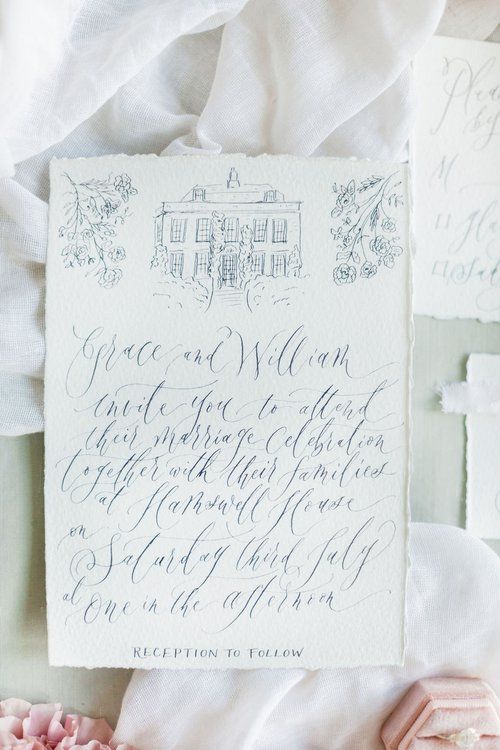 Grace and William
invite you to attend
their marriage celebration
together with their families
at Hamswell House
on
Saturday third July
at One in the afternoon
RECEPTION TO FOLLOW
M